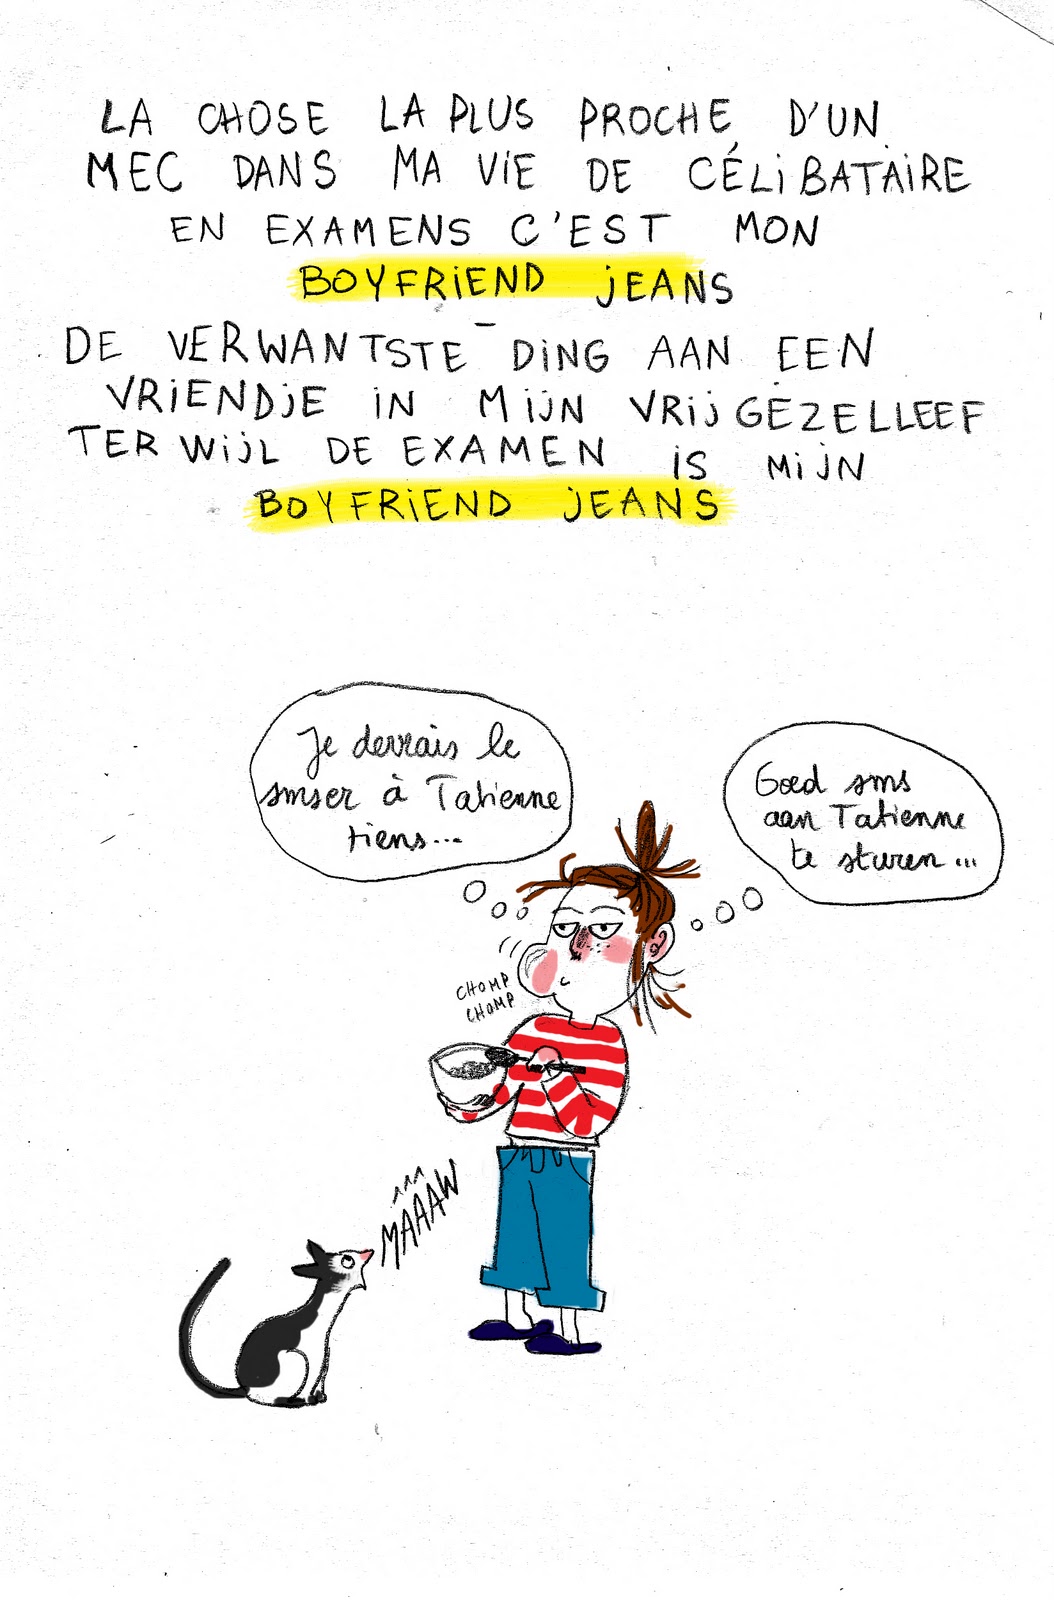 LA CHOSE LA PLUS PROCHE D'UN
MEC DANS MA VIE DE CÉLIBATAIRE
EN EXAMENS C'EST MON
BOYFRIEND JEANS
DE VERWANTSTE DING AAN EEN
VRIENDJE IN MIJN VRIJGEZELLEEF
TERWIJL DE EXAMEN IS MIJN
BOYFRIEND JEANS
Je devrais le
smser à Tatienne
tiens...
Goed sms
aan Tatienne
te sturen...
CHOMP
CHOMP
MAAAW